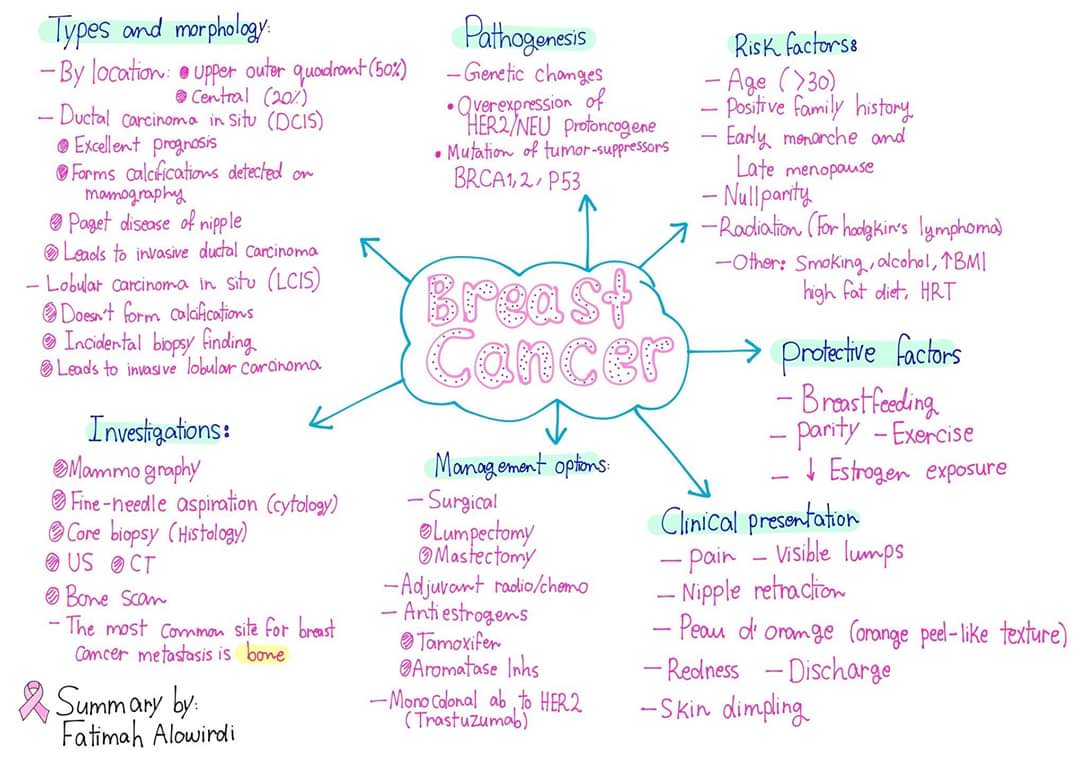 Types and morphology:
– By location: • upper outer quadrant (50%)
• Central (20%)
– Ductal carcinoma in situ (DCIS)
• Excellent prognosis
• Forms calcifications detected on
mamography
• Paget disease of nipple
• Leads to invasive ductal carcinoma
– Lobular carcinoma in situ (LCIS)
• Doesn't form calcifications
• Incidental biopsy finding
• Leads to invasive lobular carcinoma
Pathogenesis
– Genetic changes
• Overexpression of
HER2/NEU protoncogene
• Mutation of tumor-suppressors
BRCA1,2, P53
Risk factors:
– Age (>30)
– Positive family history
– Early menarche and
Late menopause
– Nullparity
– Radiation (For hodgkin's lymphoma)
– Other: Smoking, alcohol, ↑BMI
high fat diet, HRT
Breast
Cancer
Protective factors
– Breastfeeding
– parity – Exercise
– ↓ Estrogen exposure
Investigations:
• Mammography
• Fine-needle aspiration (cytology)
• Core biopsy (Histology)
• US • CT
• Bone scan
– The most common site for breast
cancer metastasis is bone
Management options:
– Surgical
• Lumpectomy
• Mastectomy
– Adjuvant radio/chemo
– Antiestrogens
• Tamoxifen
• Aromatase Inhs
– Monocolonal ab to HER2
(Trastuzumab)
Clinical presentation
– Pain – Visible lumps
– Nipple retraction
– Peau d'orange (orange peel-like texture)
– Redness – Discharge
– Skin dimpling
Summary by:
Fatimah Alowirdi